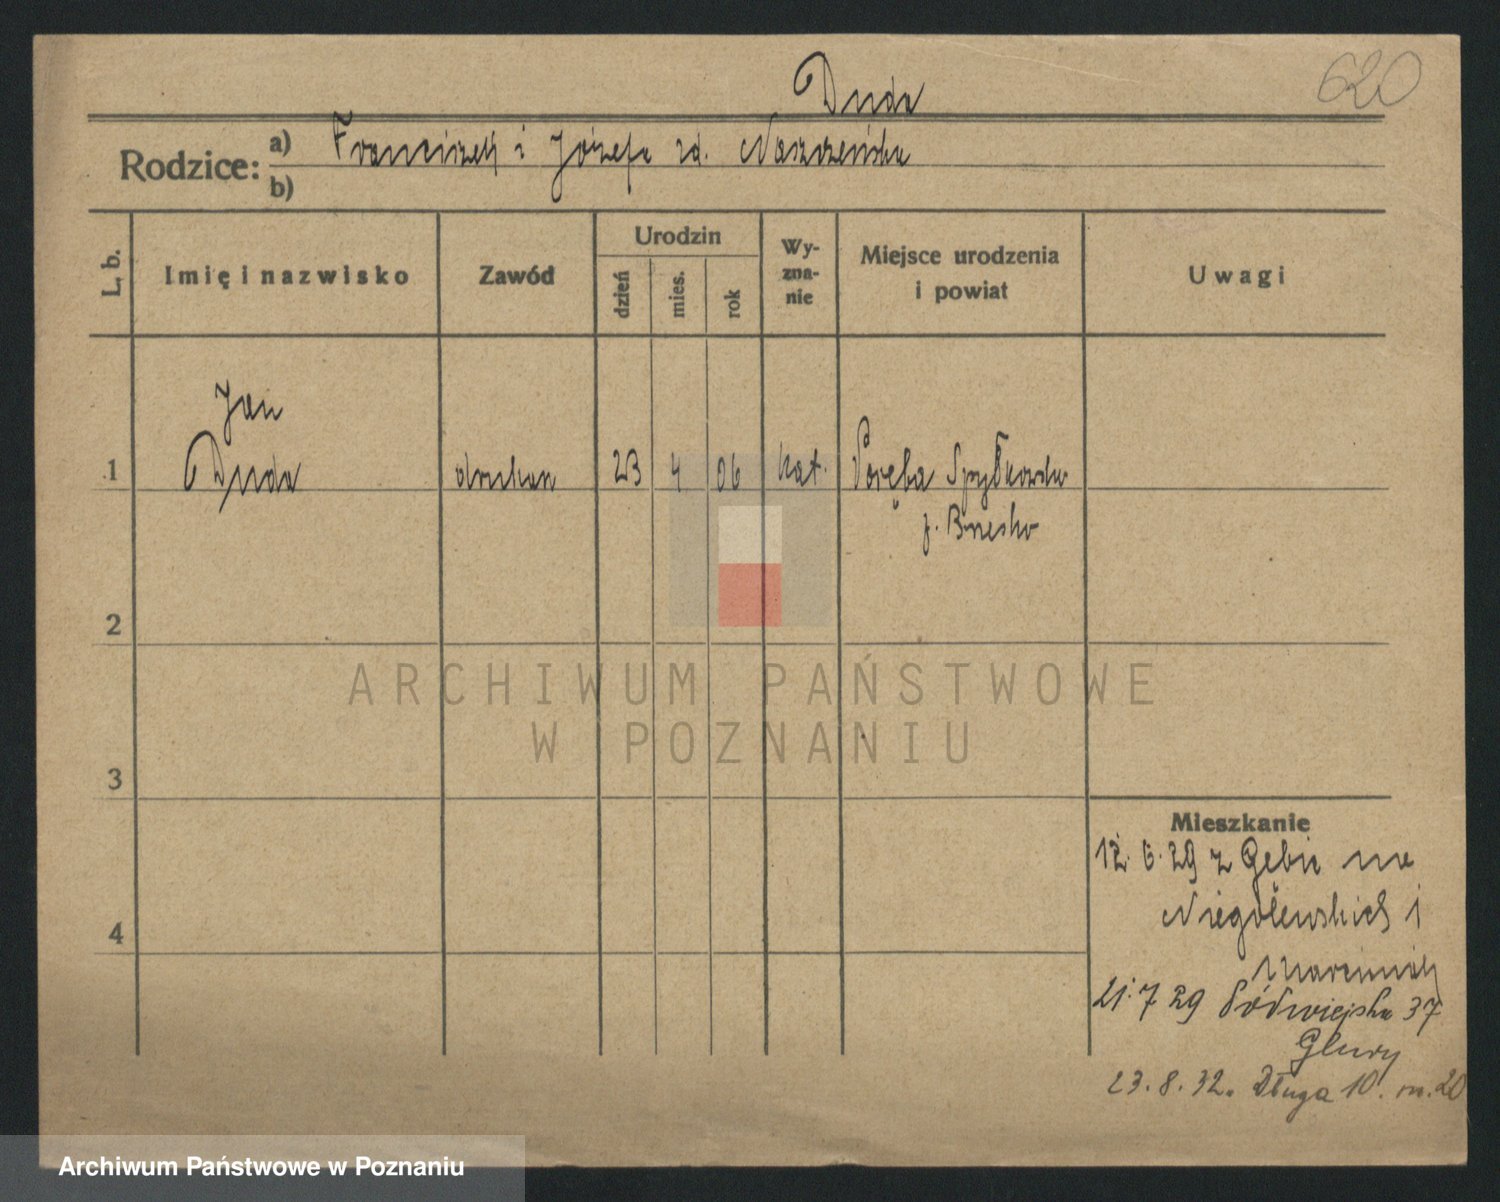 620
Duda
Rodzice: a) Franciszek i Józefa zd. Waszczeńska
b)
L. b.
Imię i nazwisko
Zawód
Urodzin
dzień
mies.
rok
Wy-
zna-
nie
Miejsce urodzenia
i powiat
Uwagi
Jan
1 Duda drukarz 23 4 06 kat. Poręba Spytkowska
p. Brzesko
2
ARCHIWUM PAŃSTWOWE
W POZNANIU
3
4
Mieszkanie
12. 6. 29 z Gębic na
Niegolewskich 1
Marciniak
21. 7 29 Półwiejska 37
23. 8. 32. Długa 10. m. 20
Archiwum Państwowe w Poznaniu